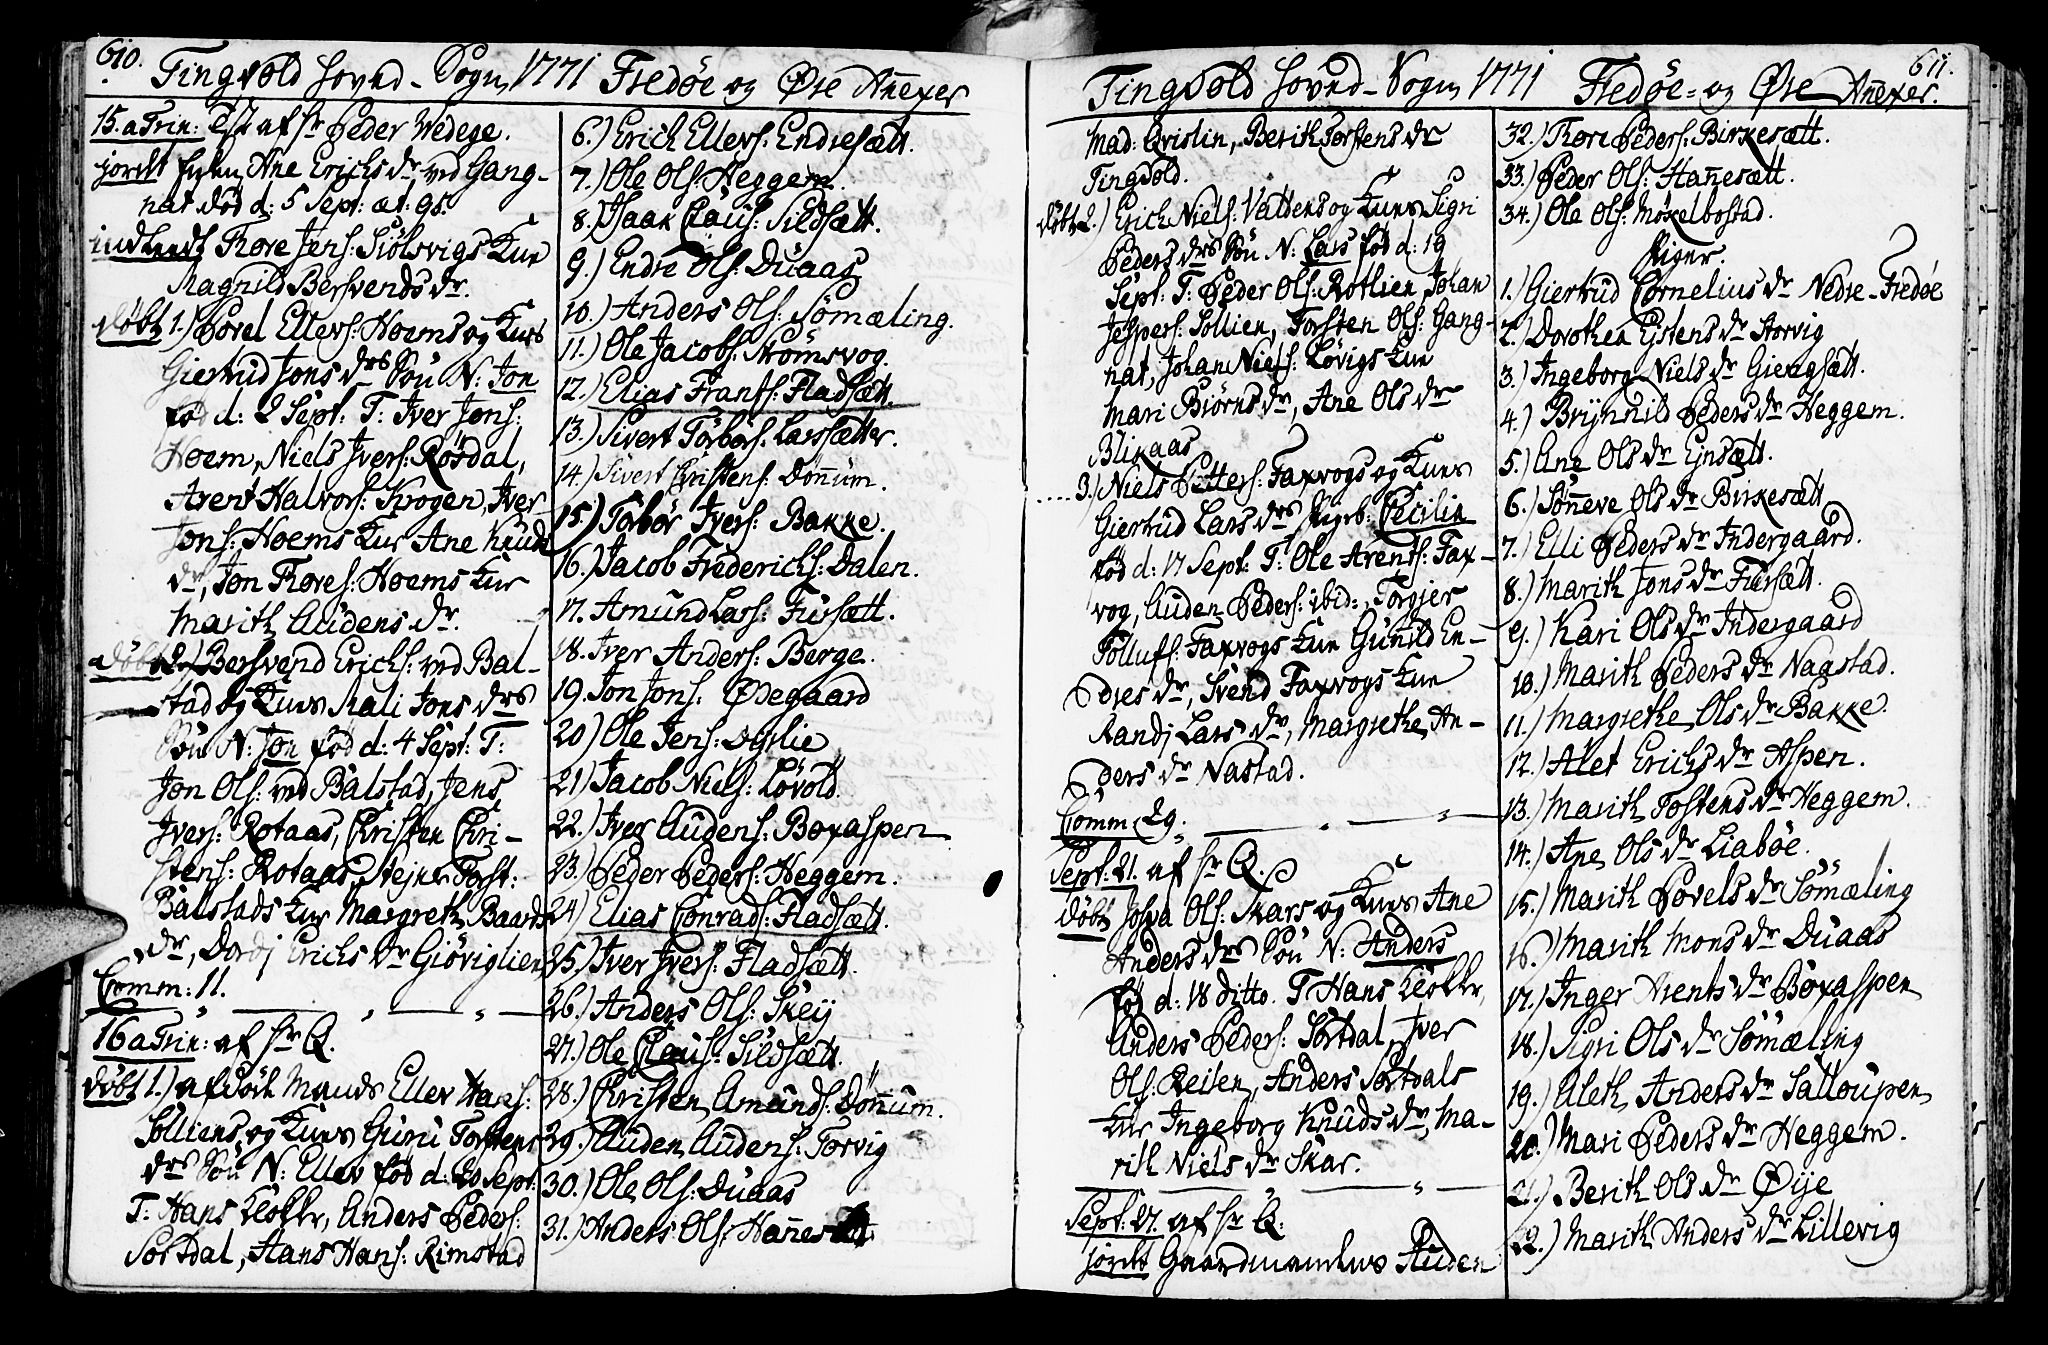 610.
Tingvold Hoved-Sogn 1771 Fredøe og Øre Anexer
15. a Trin: Tst af Hr Peder Wedege.
jordt Enken Ane Erichs dr ved Gang-
nat død d: 5 Sept: æt: 95.
indleedt Thore Jens: Siölsvigs Kue
Magnild Bersvends dr.
døbt 1.) Povel Ellevs: Hoems og Kues
Giertrud Jons drs Søn N: Jon
fød d: 2 Sept: T: Iver Jons:
Hoem, Niels Ivers: Røsdal,
Arent Halvors: Krogen, Iver
Jons: Hoems Kue Ane Knuds
dr, Jon Thores: Hoems Kue
Marith Audens dr.
døbt 2.) Bersvend Erichs: ved Bal-
stad og Kues Mali Jons drs
Søn N: Jon fød d: 4 Sept: T:
Jon Ols: ved Balstad, Jens
Ivers: Rotaas, Christen Chri-
stens: Rotaas, Stejner Torst:
Balstads Kue Margreth Baards
dr, Dordj Erichs dr Giøviglien
Comm: 11.
16 a Trin: af Hr Q.
døbt 1.) afdøde Mands Ellev Hans:
Solliens og Kues Guru Torstens
drs Søn N: Ellev fød d: 20 Sept:
T: Hans Klokker, Anders Peders:
Sortdal, Hans Hans: Rimstad
6.) Erich Ellevs: Endresætt.
7.) Ole Ols: Heggem.
8.) Isaak Claus: Sildsætt.
9.) Endre Ols: Duaas
10.) Anders Ols: Sømæling.
11.) Ole Jacobs: Strømsvog.
12.) Elias Frants: Fladsætt.
13.) Sivert Torbørs: Larssætter.
14.) Sivert Christens: Dønnum.
15.) Torbør Ivers: Bakke.
16.) Jacob Frederichs: Dalen.
17. Amund Lars: Fursætt.
18. Iver Anders: Berge.
19. Jon Jons: Ødegaard
20.) Ole Jens: Ugslie
21.) Jacob Niels: Løvold
22.) Iver Audens: Boxaspen
23.) Peder Peders: Heggem.
24.) Elias Conrads: Fladsætt.
25.) Iver Ivers: Fladsætt.
26.) Anders Ols: Skeij
27.) Ole Claus: Sildsætt.
28.) Christen Amunds: Dønnum.
29.) Auden Audens: Torvig
30.) Ole Ols: Duaas
31.) Anders Ols: Hannesætt
611.
Tingvold Hoved-Sogn 1771 Fredøe- og Øre Anexer.
Mad: Qvislin, Berith Torstens dr
Tingvold.
døbt 2.) Erich Niels: Vaagens og Kues Sigri
Peders drs Søn N: Lars fød d: 19
Sept: T: Peder Ols: Rotlien, Johan
Jespers: Sollien, Torsten Ols: Gang-
nat, Johan Niels: Løvigs Kue
Mari Biørns dr, Ane Ols dr
Blikaas
3.) Niels Petters: Faxvogs og Kues
Giertrud Lars drs Pigeb: Cecilia
fød d: 17 Sept: T: Ole Arents: Fax-
vog, Auden Peders: ibid:, Torgjer
Tollufs: Faxvogs Kue Gunild En-
dres dr, Svend Faxvogs Kue
Randj Lars dr, Margrethe An-
ders dr Nastad.
Comm: 29.
Sept: 21. af Hr Q.
døbt Johan Ols: Skars og Kues Ane
Anders drs Søn N: Anders
fød d: 18 ditto. T Hans Klokker,
Anders Peders: Sortdal, Iver
Ols: Reiten, Anders Sortdals
Kue Ingeborg Knuds dr, Ma-
rit Niels dr Skar.
Sept: 27. af Hr Q:
jordt Gaardmandens Auden
32.) Thore Peders: Birkesætt.
33.) Peder Ols: Hannesætt.
34.) Ole Ols: Møkelbostad.
Piger.
1.) Giertrud Cornelius dr Nedre-Fredøe
2.) Dorothea Estens dr Storvig
3.) Ingeborg Niels dr Giengsætt.
4.) Brynnild Peders dr Heggem.
5.) Ane Ols dr Ejnsætt.
6.) Sønneve Ols dr Birkesætt
7.) Elli Peders dr Indergaard.
8.) Marith Jons dr Fursætt.
9.) Kari Ols dr Indergaard
10.) Marith Peders dr Nagstad.
11.) Margrethe Ols dr Bakke.
12.) Alet Erichs dr Aspen.
13.) Marith Tostens dr Heggem.
14.) Ane Ols dr Liabøe.
15.) Marith Povels dr Sømæling
16.) Marith Mons dr Duaas
17.) Inger Arents dr Boxaspen
18.) Sigri Ols dr Sømæling
19.) Aleth Anders dr Salloupen
20.) Mari Peders dr Heggem.
21.) Berith Ols dr Øije
22.) Marith Anders dr Lillevig